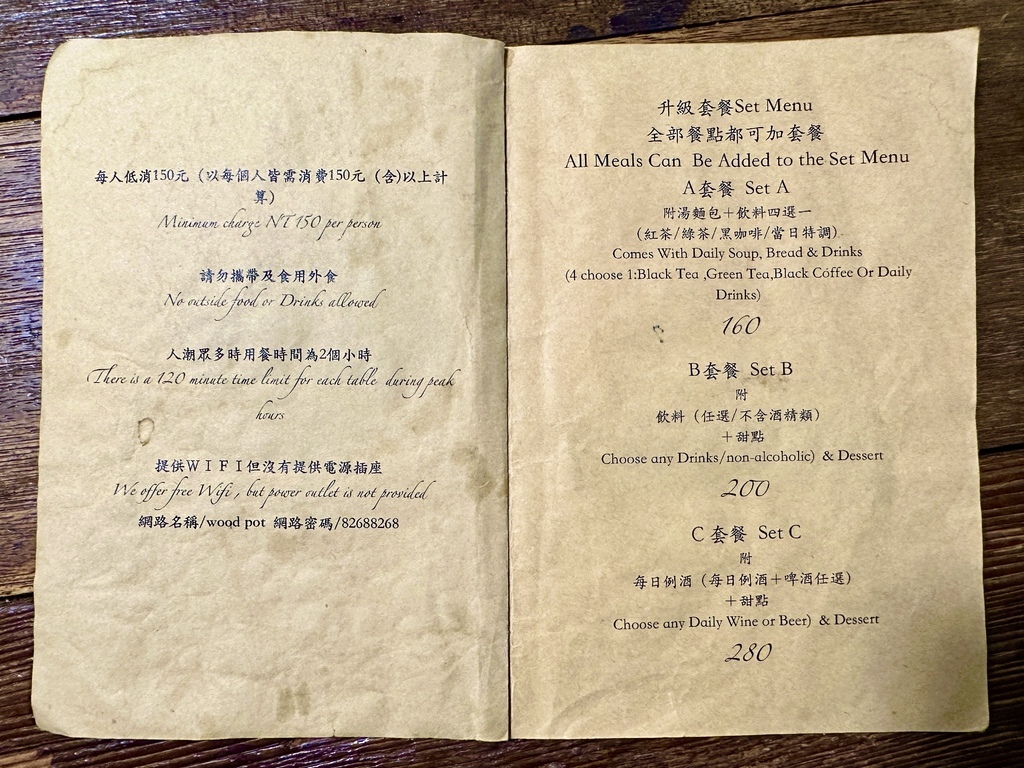 每人低消150元（以每個人皆需消費150元（含)以上計
算）
Minimum charge NT 150 per person
請勿攜帶及食用外食
No outside food or Drinks allowed
人潮眾多時用餐時間為2個小時
There is a 120 minute time limit for each table during peak
hours
提供ＷＩＦＩ但沒有提供電源插座
We offer free Wifi , but power outlet is not provided
網路名稱/wood pot 網路密碼/82688268
升級套餐Set Menu
全部餐點都可加套餐
All Meals Can Be Added to the Set Menu
A套餐 Set A
附湯麵包＋飲料四選一
（紅茶/綠茶/黑咖啡/當日特調）
Comes With Daily Soup, Bread & Drinks
(4 choose 1:Black Tea ,Green Tea,Black Coffee Or Daily
Drinks)
160
B套餐 Set B
附
飲料（任選/不含酒精類）
＋甜點
Choose any Drinks/non-alcoholic) & Dessert
200
C 套餐 Set C
附
每日例酒（每日例酒＋啤酒任選）
＋甜點
Choose any Daily Wine or Beer) & Dessert
280